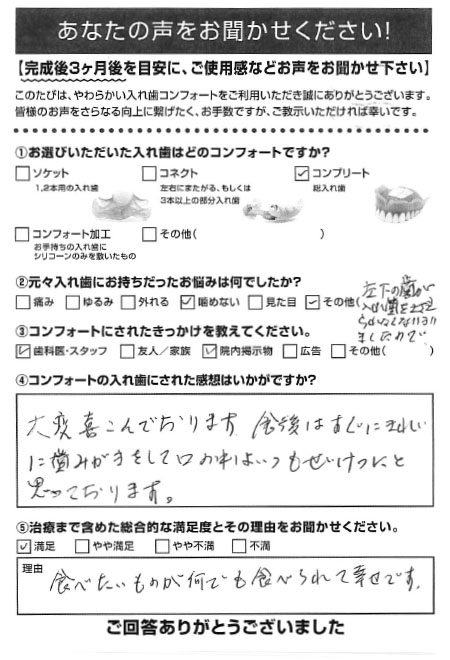 あなたの声をお聞かせください!
【完成後3ヶ月後を目安に、ご使用感などお声をお聞かせ下さい】
このたびは、やわらかい入れ歯コンフォートをご利用いただき誠にありがとうございます。
皆様のお声をさらなる向上に繋げたく、お手数ですが、ご教示いただければ幸いです。
①お選びいただいた入れ歯はどのコンフォートですか?
□ソケット □コネクト ☑コンプリート
1,2本用の入れ歯 左右にまたがる、もしくは 総入れ歯
3本以上の部分入れ歯
□コンフォート加工 □その他( )
お手持ちの入れ歯に
シリコーンのみを敷いたもの
②元々入れ歯にお持ちだったお悩みは何でしたか?
□痛み □ゆるみ □外れる ☑噛めない □見た目 ☑その他(
左下の歯が
入れ歯を
ましたので
)
③コンフォートにされたきっかけを教えてください。
☑歯科医・スタッフ □友人/家族 ☑院内掲示物 □広告 □その他( )
④コンフォートの入れ歯にされた感想はいかがですか?
大変喜こんでおります 食後はすぐにきれい
に歯みがきをして口の中はいつもせいけつに と
思っております。
⑤治療まで含めた総合的な満足度とその理由をお聞かせください。
☑満足 □やや満足 □やや不満 □不満
理由
食べたいものが何でも食べられて幸せです。
ご回答ありがとうございました